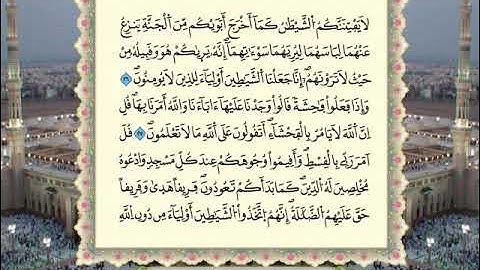 لَا يَفْتِنَنَّكُمُ الشَّيْطَٰنُ كَمَآ أَخْرَجَ أَبَوَيْكُم مِّنَ الْجَنَّةِ يَنزِعُ
عَنْهُمَا لِبَاسَهُمَا لِيُرِيَهُمَا سَوْءَٰتِهِمَآ إِنَّهُۥ يَرَىٰكُمْ هُوَ وَقَبِيلُهُۥ مِنْ
حَيْثُ لَا تَرَوْنَهُمْ إِنَّا جَعَلْنَا الشَّيَٰطِينَ أَوْلِيَآءَ لِلذِينَ لَا يُومِنُونَ
وَإِذَا فَعَلُوا فَٰحِشَةً قَالُوا وَجَدْنَا عَلَيْهَآ ءَابَآءَنَا وَاللَّهُ أَمَرَنَا بِهَا قُلِ
اِنَّ اللَّهَ لَا يَامُرُ بِالْفَحْشَآءِ اَتَقُولُونَ عَلَى اللَّهِ مَا لَا تَعْلَمُونَ قُلَ
اَمَرَ رَبِّے بِالْقِسْطِ وَأَقِيمُوا وُجُوهَكُمْ عِندَ كُلِّ مَسْجِدٍ وَادْعُوهُ
مُخْلِصِينَ لَهُ الدِّينَ كَمَا بَدَأَكُمْ تَعُودُونَ فَرِيقاً هَدَىٰ وَفَرِيقاً
حَقَّ عَلَيْهِمُ الضَّلَٰلَةُ إِنَّهُمُ اتَّخَذُوا الشَّيَٰطِينَ أَوْلِيَآءَ مِن دُونِ اللَّهِ